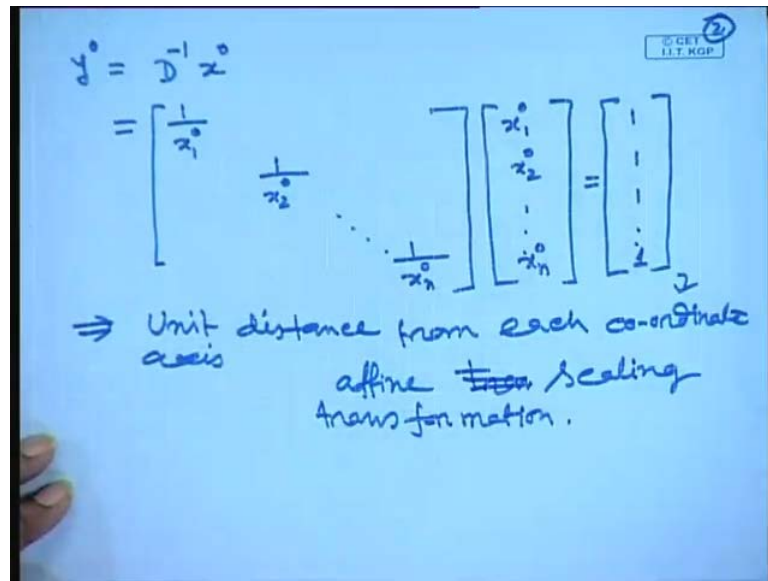 ②
© CET
I.I.T. KGP
y⁰ = D⁻¹ x⁰
= [ 1/x₁⁰ 1/x₂⁰ ⋱ 1/xₙ⁰ ] [ x₁⁰ x₂⁰ ⋮ xₙ⁰ ] = [ 1 1 1 ⋮ 1 ]
⇒ Unit distance from each co-ordinate
axis
affine scaling
transformation.